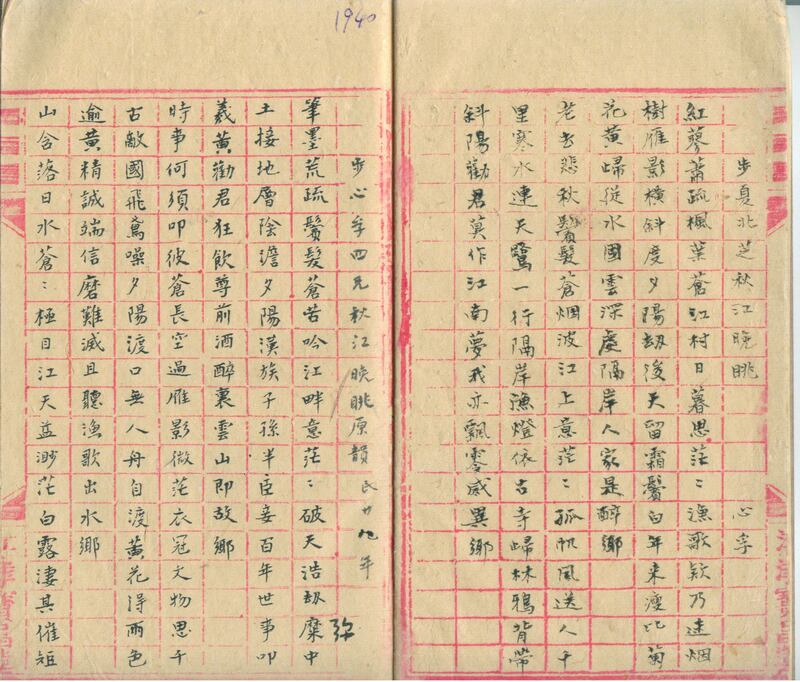 1940
步夏北芝秋江晚眺 心孚
紅蓼蕭疏楓葉蒼江村日暮思茫〻漁歌欸乃迷烟
樹雁影橫斜度夕陽劫後天留霜鬢白年来瘦比菊
花黃歸從水國雲深處隔岸人家是醉鄉
老去悲秋鬢髮蒼烟波江上意茫〻孤帆風送人千
里寒水連天鷺一行隔岸漁燈依古寺歸林鴉背帶
斜陽勸君莫作江南夢我亦飄零感異鄉
步心孚四兄秋江晚眺原韻 民廿九年
筆墨荒疏鬢髮蒼苦吟江畔意茫〻破天浩劫糜中
土接地層陰澹夕陽漢族子孫半臣妾百年世事叩
羲黃勸君狂飲尊前酒醉裏雲山即故鄉
時事何須叩彼蒼長空過雁影微茫衣冠文物思千
古敵國飛鳶噪夕陽渡口無人舟自渡黃花得雨色
逾黃精誠端信磨難滅且聽漁歌出水鄉
山含落日水蒼〻極目江天益渺茫白露淒其催短